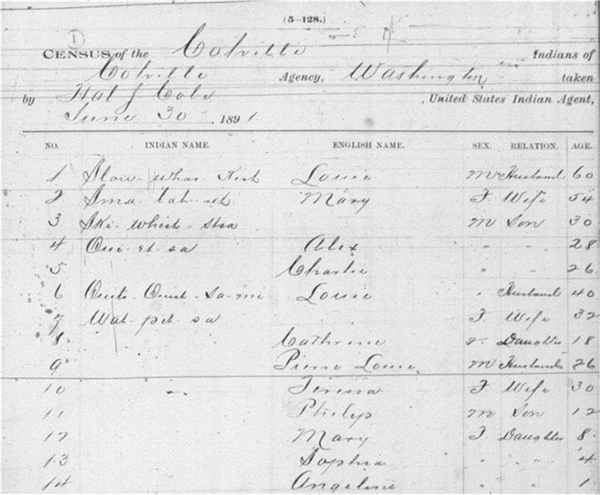 (5—128.)
1
CENSUS of the Colville Indians of
Colville Agency, Washington taken
by Hal J Cole, United States Indian Agent,
June 30 1891
NO. INDIAN NAME. ENGLISH NAME. SEX. RELATION. AGE.
1 Louie M Husband 60
2 Mary F Wife 54
3 M Son 30
4 Alex " " 28
5 Charlie " " 26
6 Louie " Husband 40
7 F Wife 32
8 Cathrine F Daughter 18
9 Pierre Louie M Husband 26
10 Teressa F Wife 30
11 Philip M Son 12
12 Mary F Daughter 8
13 Sophia " " 4
14 Angeline " " 1